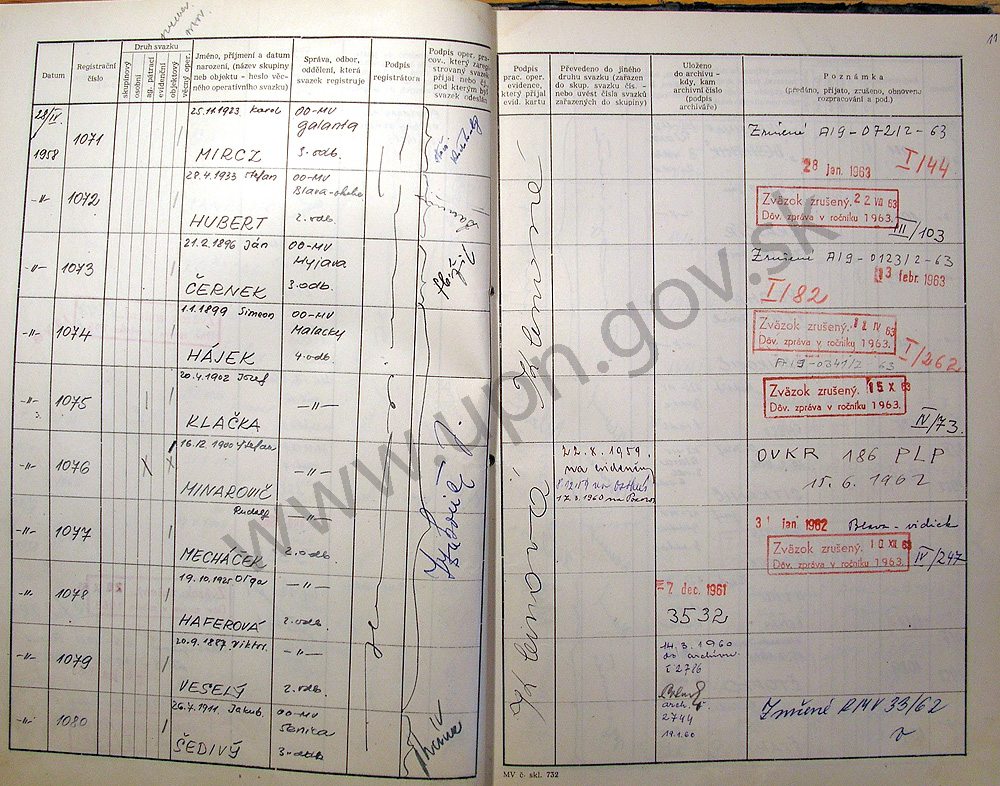 11
Druh svazku
Datum
Registrační
číslo
skupinový
osobní
ag. pátrací
evidenční
objektový
věcný oper.
Jméno, příjmení a datum
narození, (název skupiny
neb objektu - heslo věc-
ného operativního svazku)
Správa, odbor,
oddělení, která
svazek registruje
Podpis
registrátora
Podpis oper. pra-
cov., který zareg
strovaný svazek
přijal nebo čís.
pod kterým byl
svazek odeslán
Podpis
prac. oper.
evidence,
který přijal
evid. kartu
Převedeno do jiného
druhu svazku (zařazen
do skup. svazku čís. -
nebo uvést čísla svazků
zařazených do skupiny)
Uloženo
do archivu -
kdy, kam
archivní číslo
(podpis
archiváře)
Poznámka
(předáno, přijato, zrušeno, obnoveno
rozpracování a pod.)
28/IV.
1958
1071
25.11.1923 Karol
MIRCZ
OO-MV
galanta
3. odb.
Zrušené A/9-072/2-63
28 jan. 1963
I/44
-"-
1072
28.4.1933 Štefan
HUBERT
OO-MV
2. odb.
Zväzok zrušený. 22 VII 63
Dôv. zpráva v ročníku 1963.
III/103
-"-
1073
21.2.1896 Ján
ČERNEK
OO-MV
Myjava
3. odb.
Zrušené A/9-0123/2-63
I/82
13 febr. 1963
-"-
1074
1.1.1899 Simeon
HÁJEK
OO-MV
Malacky
4. odb.
Zväzok zrušený. 12 IV 63
Dôv. zpráva v ročníku 1963.
I/262
A/9-0341/2-63
-"-
1075
20.4.1902 Jozef
KLAČKA
-"-
Zväzok zrušený. 15 X 63
Dôv. zpráva v ročníku 1963.
IV/73.
-"-
1076
16.12.1900 Štefan
MINAROVIČ
-"-
22.X.1959.
na evidenčný
OVKR 186 PLP
15.6.1962
-"-
1077
Rudolf
MECHÁČEK
-"-
2. odb
31 jan 1962 Blava-vidiek
Zväzok zrušený. 10 XII 63
Dôv. zpráva v ročníku 1963.
IV/247
-"-
1078
19.10.1925 Oľga
HAFEROVÁ
-"-
2. odb.
7 dec. 1961
3532
-"-
1079
20.9.1887 Viktor.
VESELÝ
-"-
2. odb.
14.3.1960
do archívu
-"-
1080
26.7.1911. Jakub.
ŠEDIVÝ
OO-MV
Senica
3. odb
arch. č.
2744
19.1.60
Zrušené RMV 33/62
Klemová Klemová
MV č. skl. 732
www.upn.gov.sk